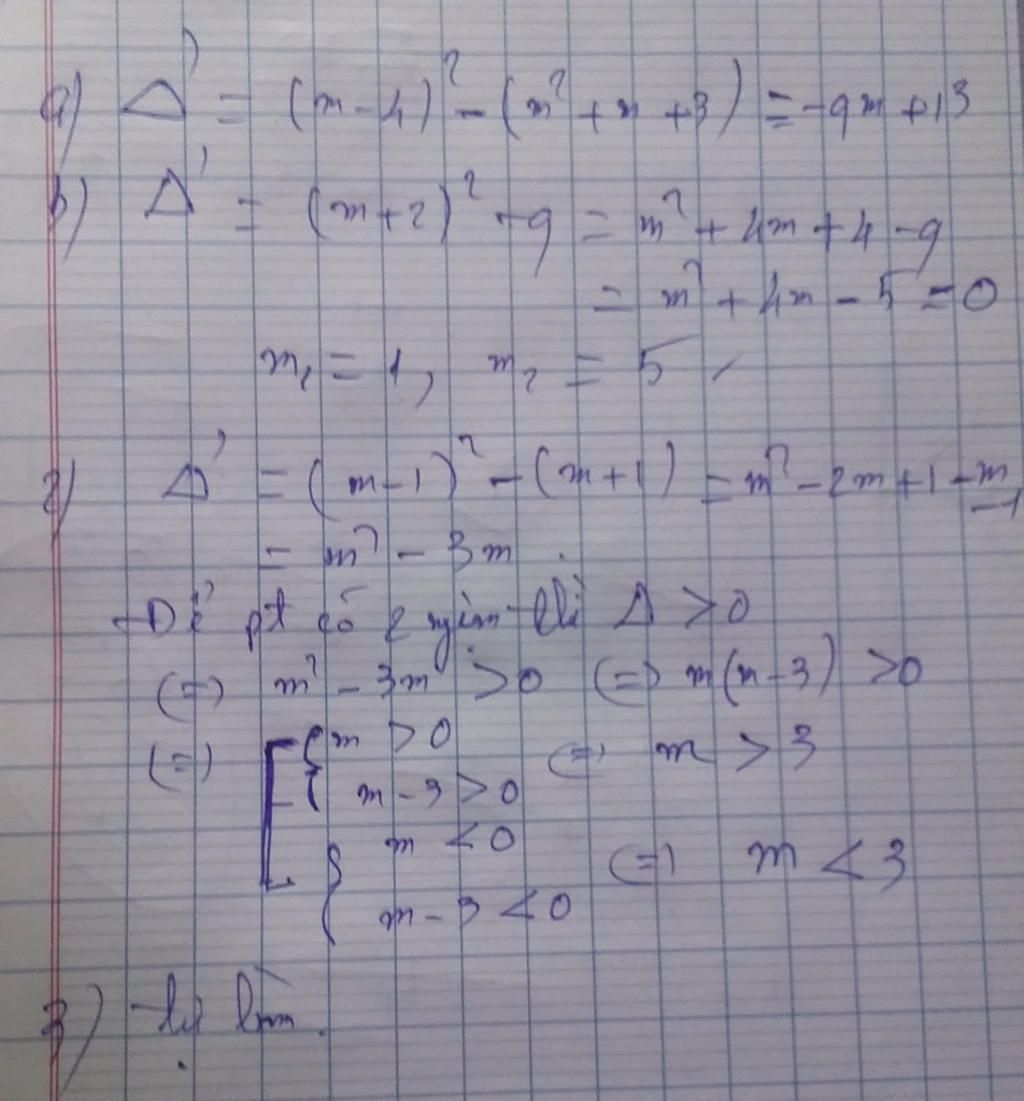 a) Δ' = (m-4)² - (m² + m + 3) = -9m + 13
b) Δ' = (m+2)² - 9 = m² + 4m + 4 - 9
= m² + 4m - 5 = 0
m₁ = 1, m₂ = 5
2) Δ' = (m-1)² - (m+1) = m² - 2m + 1 - m - 1
= m² - 3m.
Để pt có 2 ngiệm thì Δ > 0
(=) m² - 3m > 0 (=) m(m-3) > 0
(=) [ { m > 0
m - 3 > 0 (=) m > 3
{ m < 0
m - 3 < 0 (=) m < 3
3) tự làm.